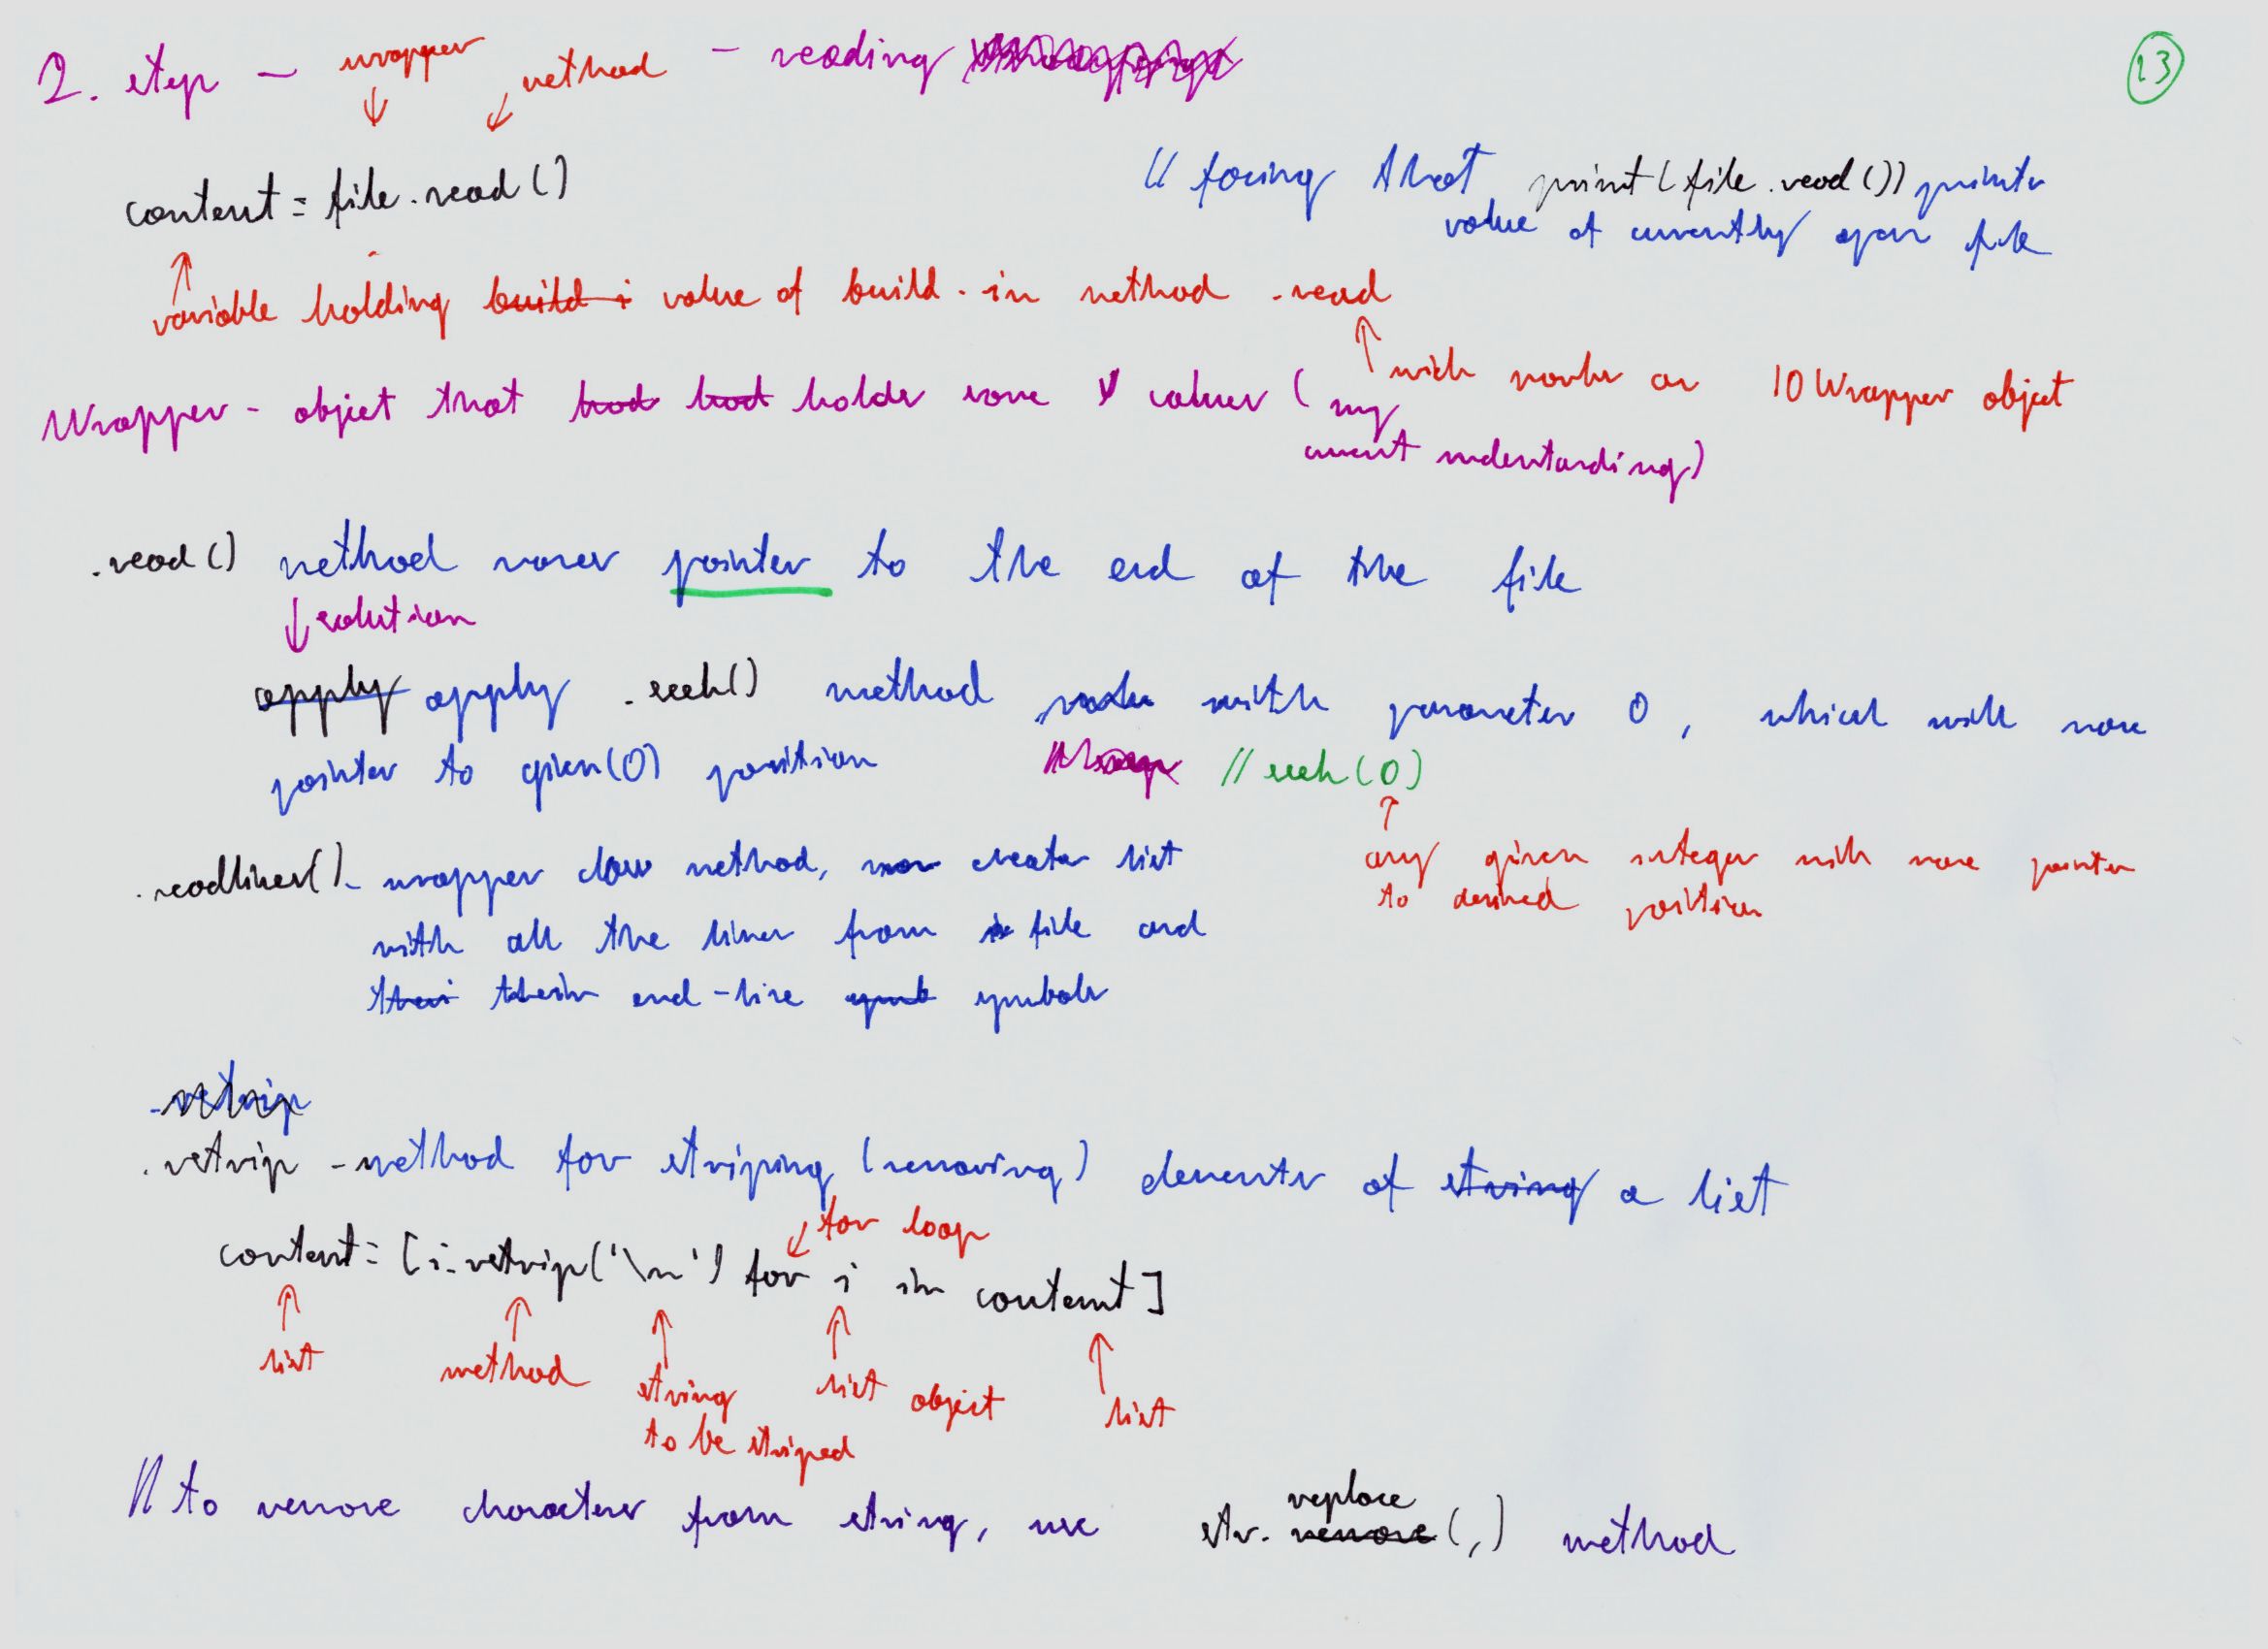 2. step – wrapper method – reading
23
content = file.read()
// facing that print(file.read()) prints
value of currently open file
variable holding build i value of build-in method .read
which works on IOWrapper object
Wrapper - object that had had holds some values (my
current understanding)
.read() method moves pointer to the end of the file
solution
apply apply .seek() method with parameter 0, which will move
pointer to given(0) position // seek(0)
any given integer will move pointer
to desired position
.readlines() - wrapper class method, creates list
with all the lines from file and
their their end-line symb symbols
.rstrip
.rstrip - method for striping (removing) elements of string a list
for loop
content = [i.rstrip('\n') for i in content]
list method string list object list
to be striped
// to remove characters from string, use str. remove replace (,) method